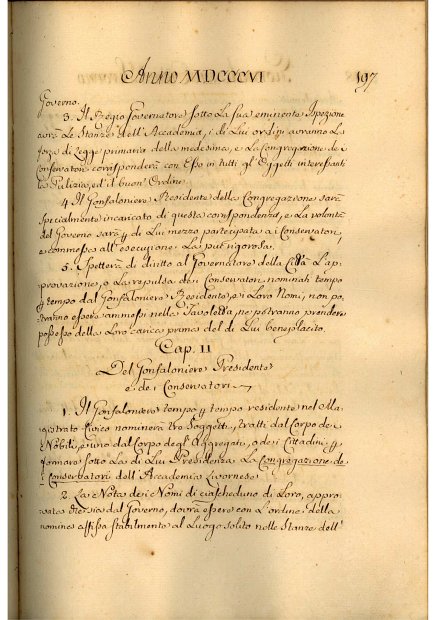 Anno MDCCCVI
197
Governo.
3. Il Regio Governatore sotto La sua eminente Ispezione
avrà Le Stanze dell'Accademia, i di Lui ordini avranno La
forza di Legge primaria della medesima, e La Congregazione de i
Conservatori corrisponderà con Esso in tutti gl'Oggetti interessanti
La Pulizia, ed il buon'Ordine.
4. Il Gonfaloniere Presidente della Congregazione sarà
specialmente incaricato di questa corrispondenza, e La volontà
del Governo sarà p di Lui mezzo partecipata a i Conservatori,
e commessa all'esecuzione La più rigorosa.
5. Spetterà di diritto al Governatore della Città L'ap-
provazione, o La repulsa de i Conservatori nominati tempo
p tempo dal Gonfaloniere Residente, e i Loro Nomi, non po-
tranno essere ammessi nella Tavoletta, ne potranno prendere
possesso della Loro carica prima del di Lui beneplacito.
Cap. II
Del Gonfaloniere Presidente
e de i Conservatori
1. Il Gonfaloniere tempo p tempo residente nel Ma-
gistrato Civico nominerà tre Soggetti, tratti dal Corpo de i
Nobili, e uno dal Corpo degl'Aggregati, o de i Cittadini p
formare sotto La di Lui Presidenza La Congregazione de
i Conservatori dell'Accademia Livornese.
2. La Nota de i Nomi di ciascheduno di Loro, appro-
vata dal Governo, dovrà essere con L'ordine della
nomina affissa stabilmente al Luogo solito nelle Stanze dell'